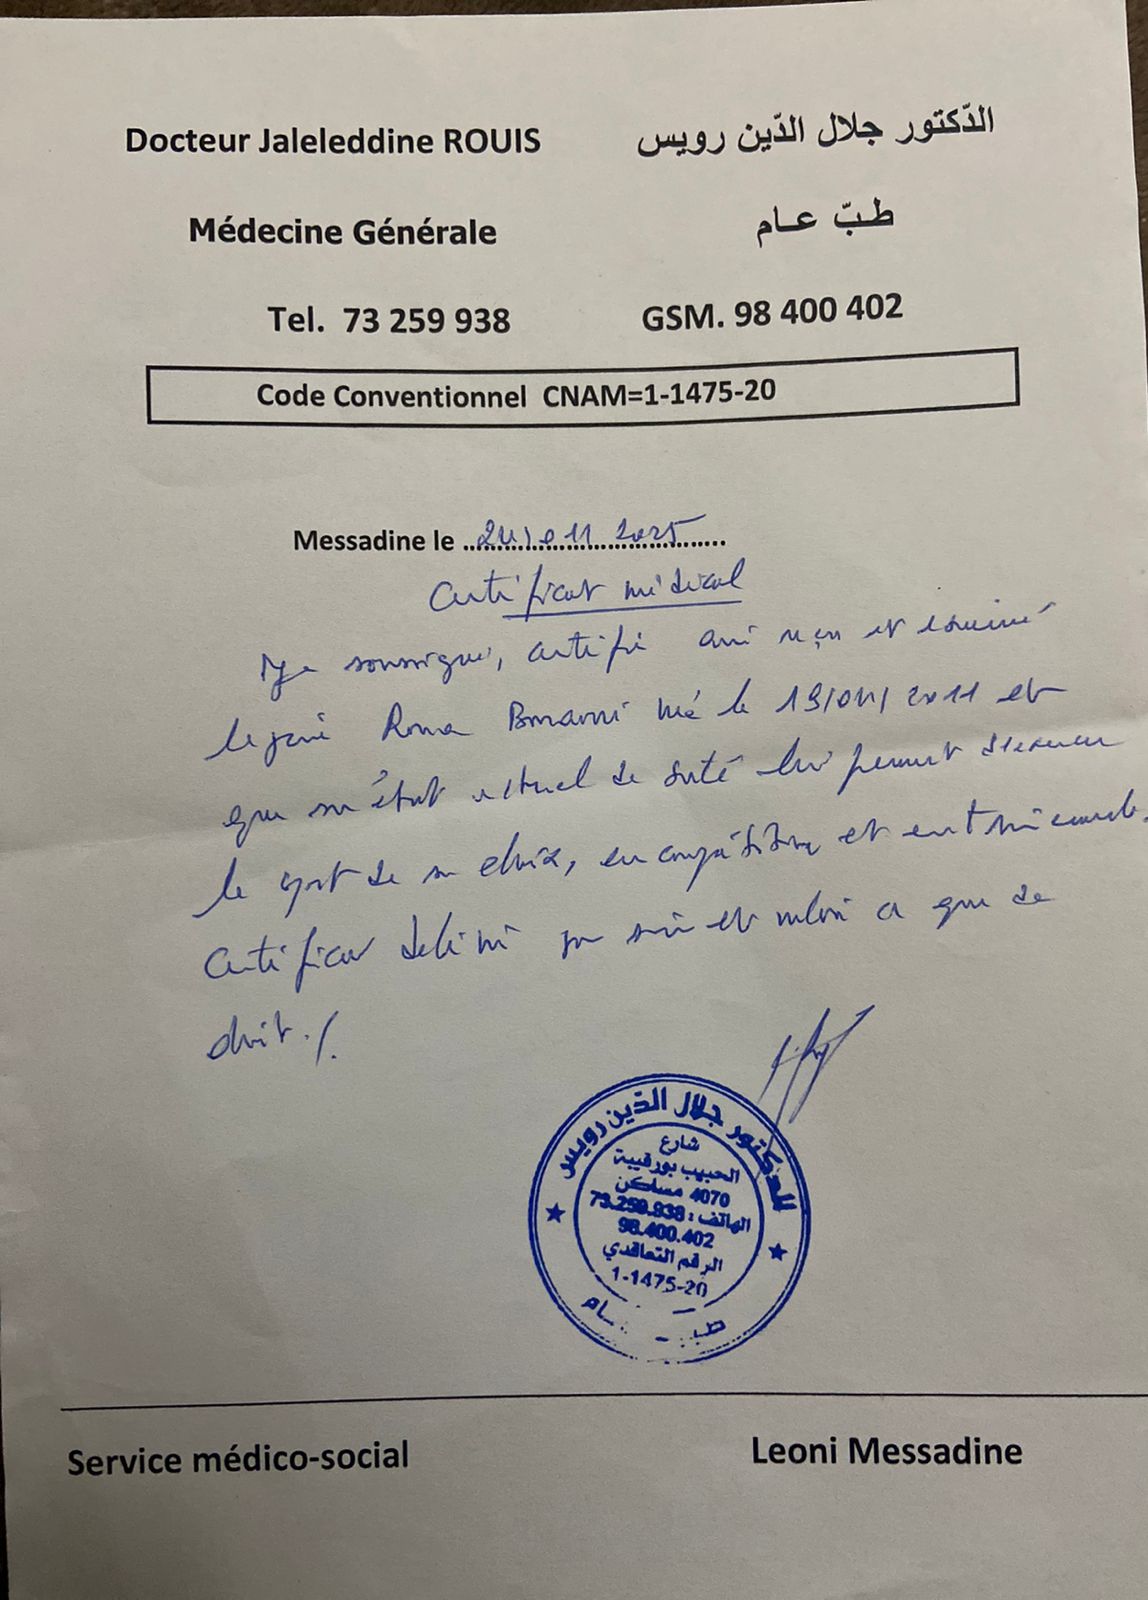 Docteur Jaleleddine ROUIS
الدّكتور جلال الدّين رويس
Médecine Générale
طبّ عام
Tel. 73 259 938
GSM. 98 400 402
Code Conventionnel CNAM=1-1475-20
Messadine le 2025
Certificat médical
Je soussigné, certifie avoir reçu et examiné
né le et
que son état actuel de santé lui permet d'exercer
le sport de son choix, en compétition et entrainement.
Certificat délivré pour servir et valoir ce que de
droit ./.
الدكتور جلال الدّين رويس
شارع
الحبيب بورقيبة
4070 مساكن
الهاتف : 73.259.938
98.400.402
الرقم التعاقدي
1-1475-20
Service médico-social
Leoni Messadine